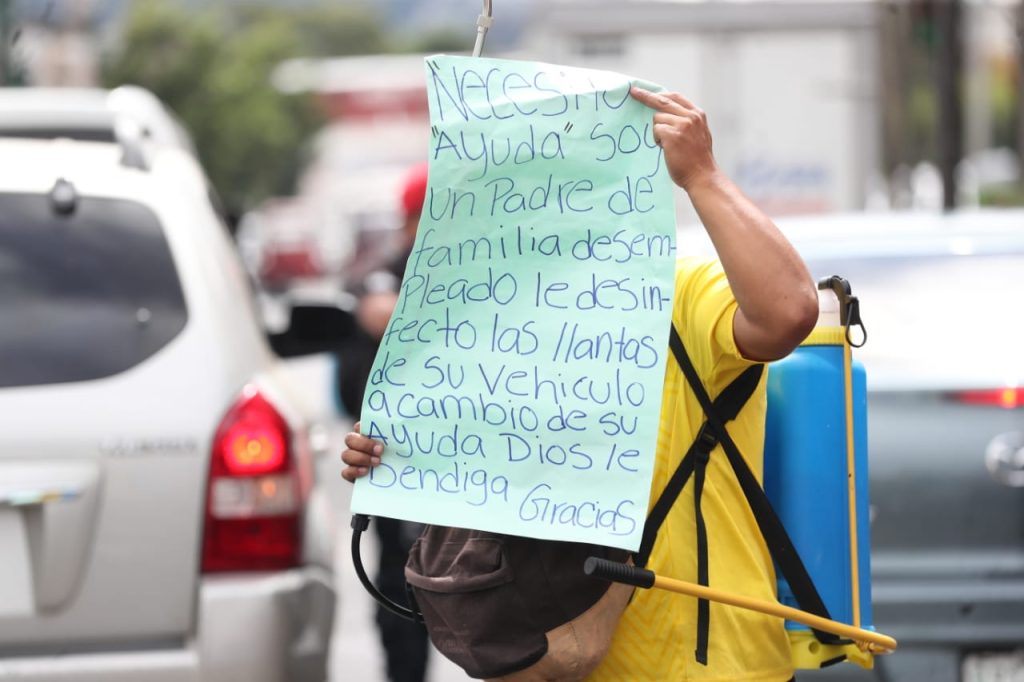 "Necesito
"Ayuda" soy
un Padre de
familia desem-
Pleado le desin-
fecto las llantas
de su vehiculo
a cambio de su
Ayuda Dios le
bendiga Gracias